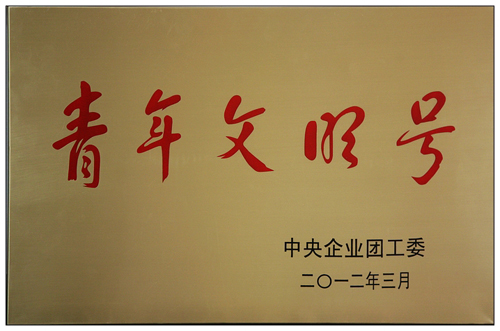 青年文明号
中央企业团工委
二〇一二年三月